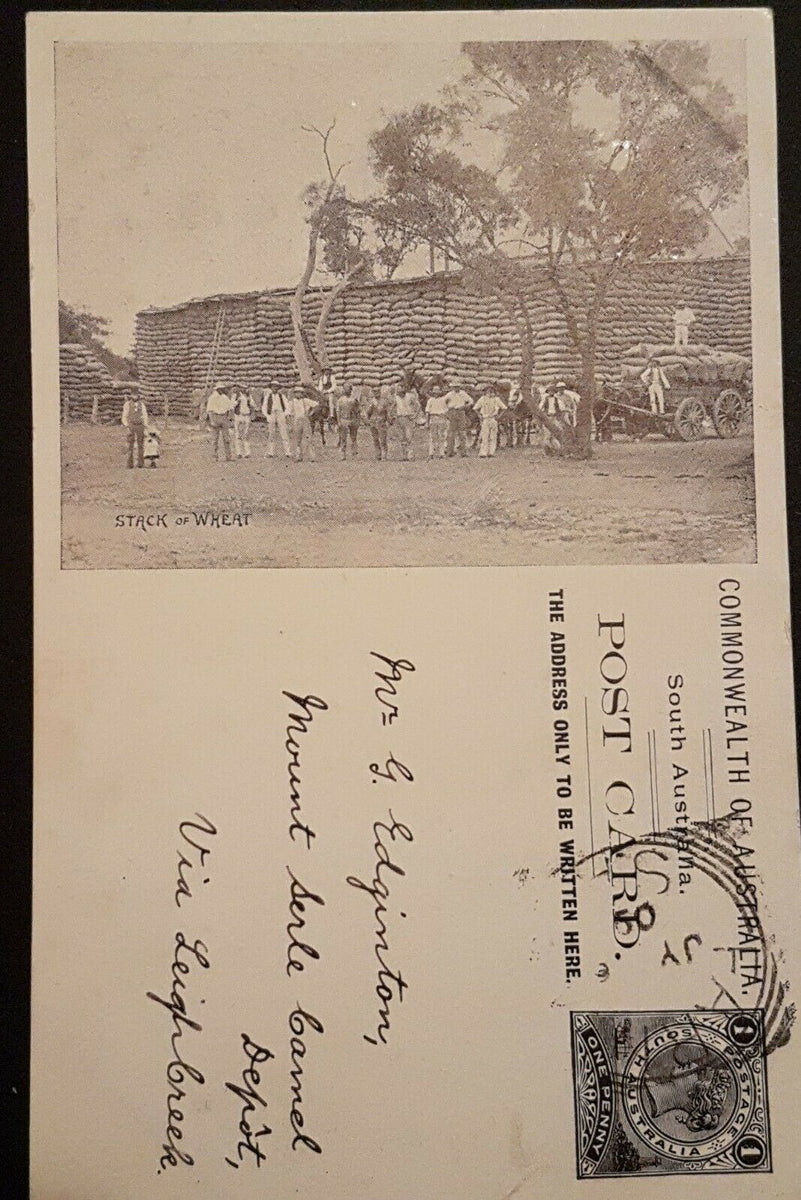 STACK OF WHEAT
COMMONWEALTH OF AUSTRALIA.
South Australia.
POST CARD.
THE ADDRESS ONLY TO BE WRITTEN HERE.
POSTAGE
SOUTH AUSTRALIA
1
1
ONE PENNY
Mr G. Edginton,
Mount Serle Camel
Depôt,
Via Leigh Creek.